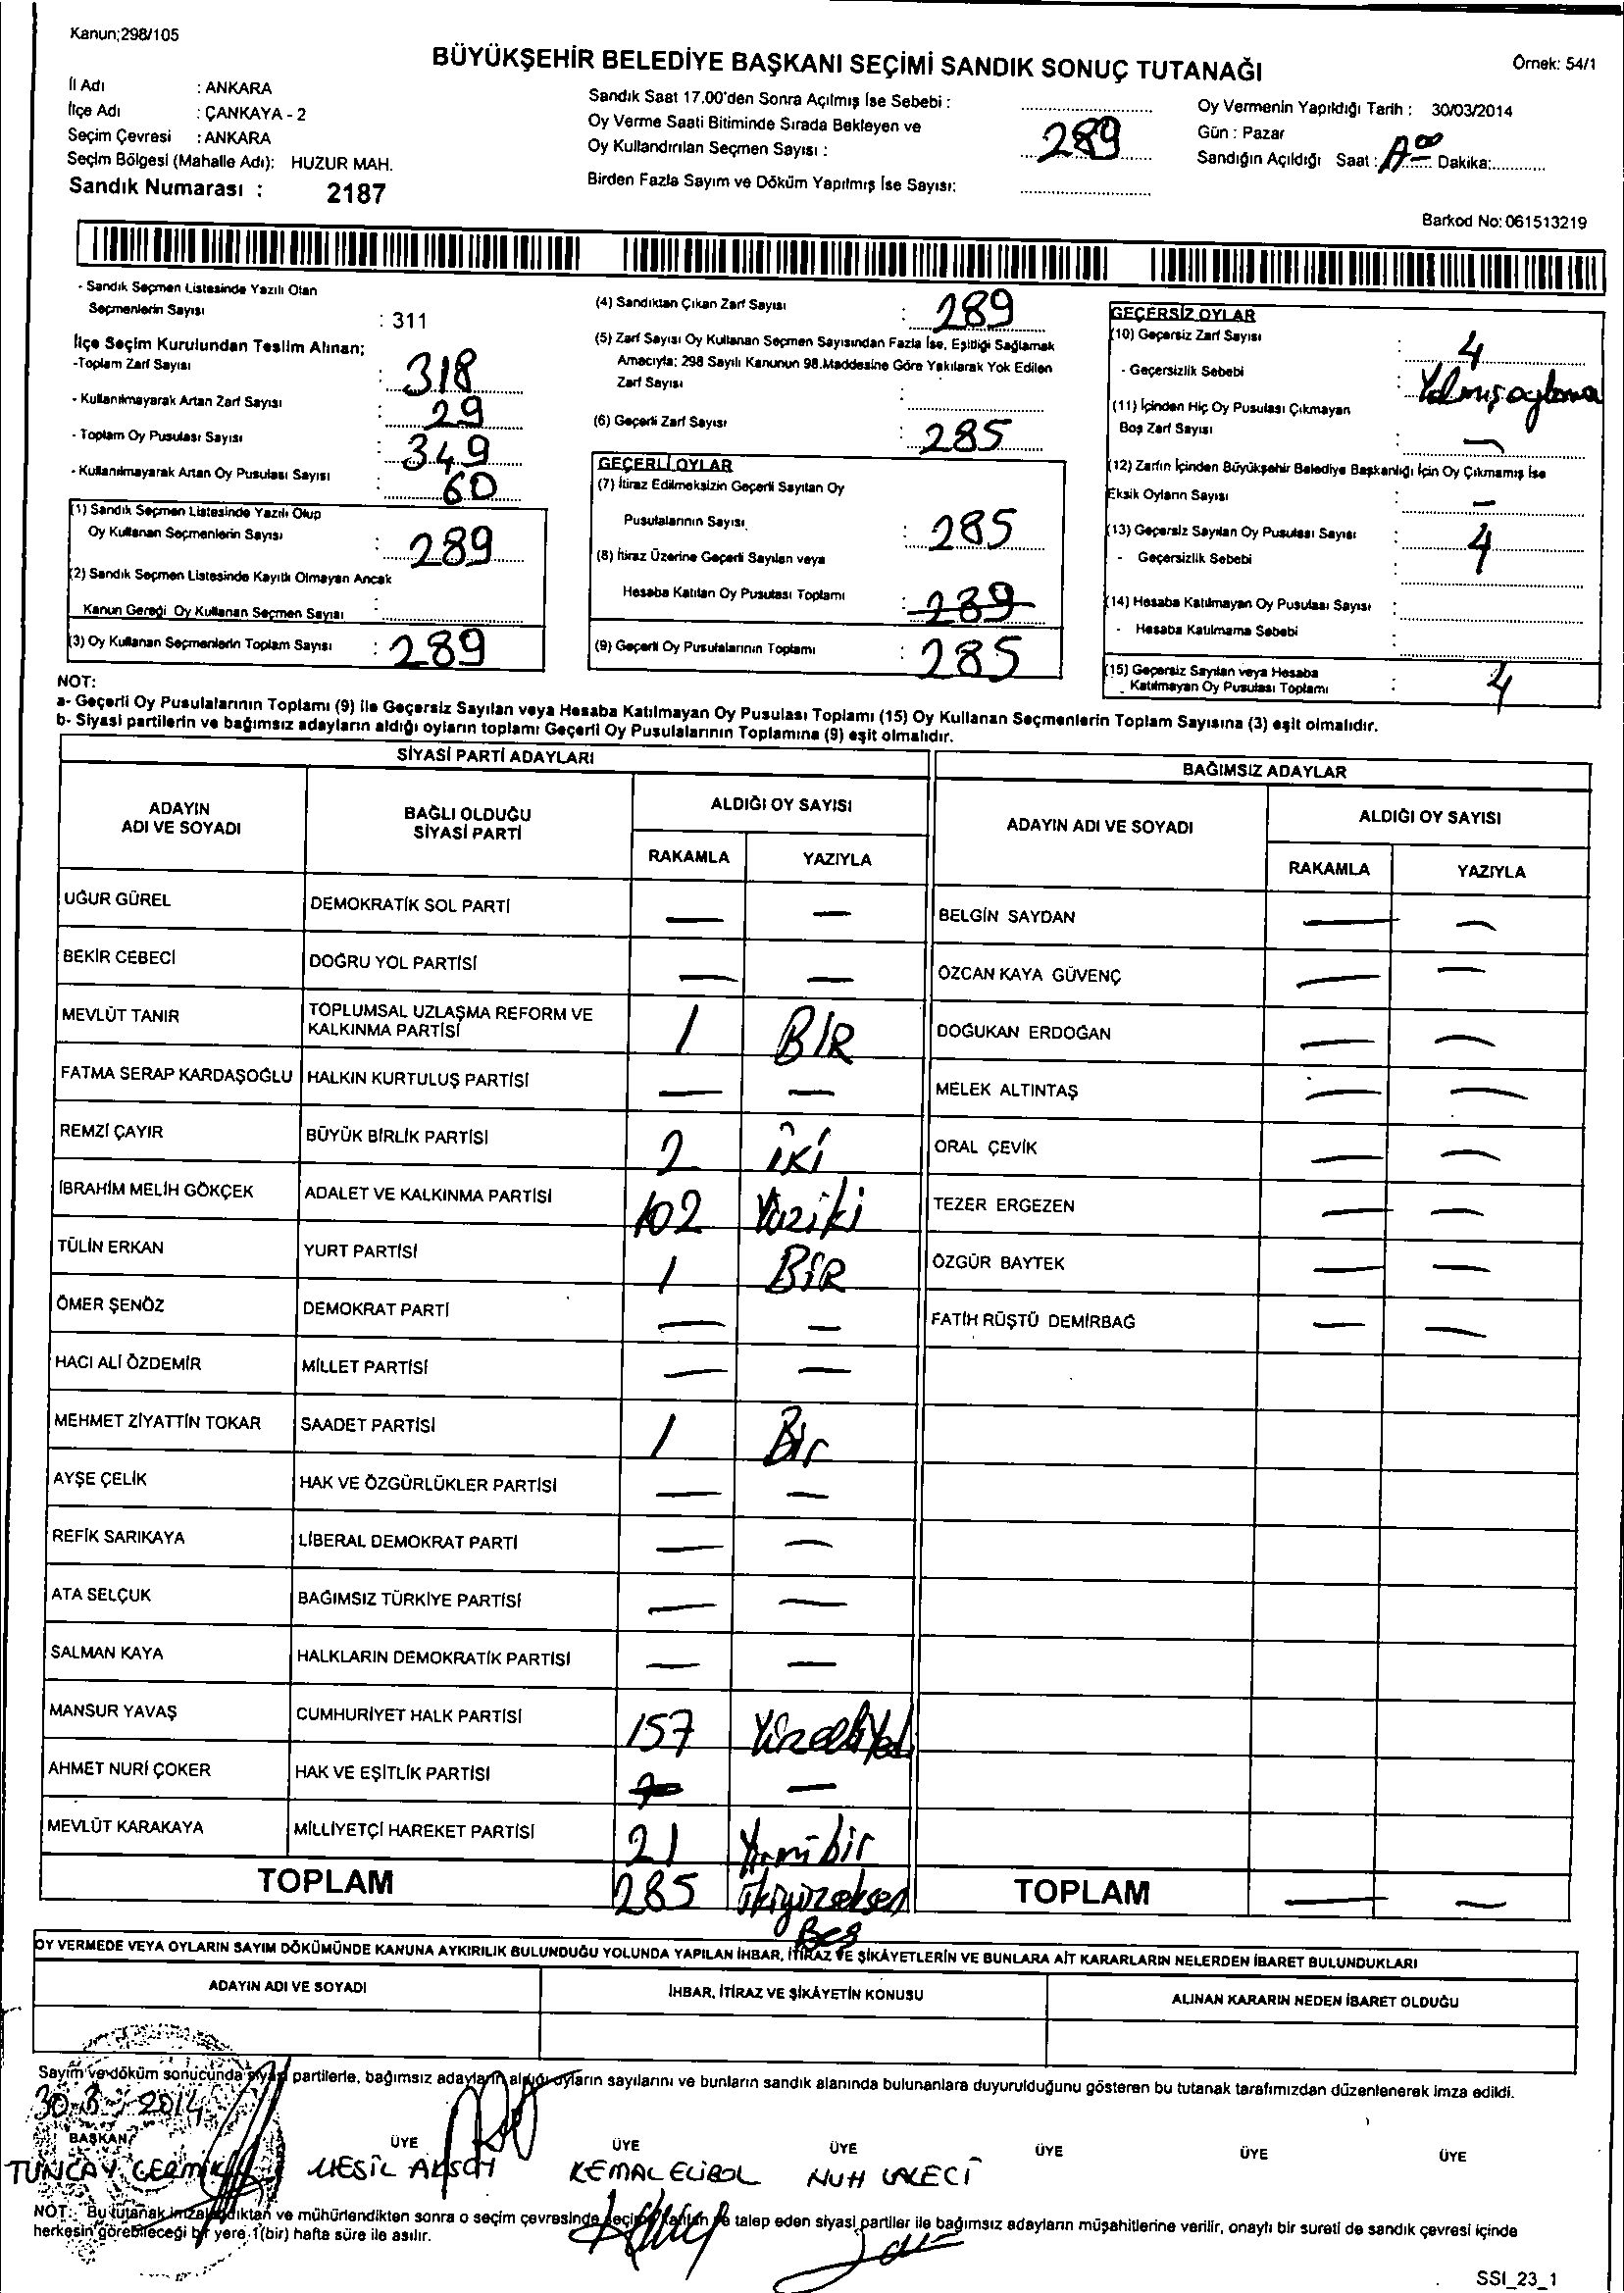 Kanun;298/105
BÜYÜKŞEHİR BELEDİYE BAŞKANI SEÇİMİ SANDIK SONUÇ TUTANAĞI
Örnek: 54/1
İl Adı : ANKARA
İlçe Adı : ÇANKAYA - 2
Seçim Çevresi : ANKARA
Seçim Bölgesi (Mahalle Adı): HUZUR MAH.
Sandık Numarası : 2187
Sandık Saat 17.00'den Sonra Açılmış İse Sebebi :
Oy Verme Saati Bitiminde Sırada Bekleyen ve
Oy Kullandırılan Seçmen Sayısı : 289
Birden Fazla Sayım ve Döküm Yapılmış İse Sayısı:
Oy Vermenin Yapıldığı Tarih : 30/03/2014
Gün : Pazar
Sandığın Açıldığı Saat : Dakika:
Barkod No: 061513219
- Sandık Seçmen Listesinde Yazılı Olan
Seçmenlerin Sayısı : 311
İlçe Seçim Kurulundan Teslim Alınan;
-Toplam Zarf Sayısı : 318
- Kullanılmayarak Artan Zarf Sayısı : 29
- Toplam Oy Pusulası Sayısı : 349
- Kullanılmayarak Artan Oy Pusulası Sayısı : 60
(1) Sandık Seçmen Listesinde Yazılı Olup
Oy Kullanan Seçmenlerin Sayısı : 289
(2) Sandık Seçmen Listesinde Kayıtlı Olmayan Ancak
Kanun Gereği Oy Kullanan Seçmen Sayısı :
(3) Oy Kullanan Seçmenlerin Toplam Sayısı : 289
(4) Sandıktan Çıkan Zarf Sayısı : 289
(5) Zarf Sayısı Oy Kullanan Seçmen Sayısından Fazla İse, Eşitliği Sağlamak
Amacıyla; 298 Sayılı Kanunun 98.Maddesine Göre Yakılarak Yok Edilen
Zarf Sayısı :
(6) Geçerli Zarf Sayısı : 285
GEÇERLİ OYLAR
(7) İtiraz Edilmeksizin Geçerli Sayılan Oy
Pusulalarının Sayısı : 285
(8) İtiraz Üzerine Geçerli Sayılan veya
Hesaba Katılan Oy Pusulası Toplamı : 289
(9) Geçerli Oy Pusulalarının Toplamı : 285
GEÇERSİZ OYLAR
(10) Geçersiz Zarf Sayısı : 4
- Geçersizlik Sebebi :
(11) İçinden Hiç Oy Pusulası Çıkmayan
Boş Zarf Sayısı : —
(12) Zarfın İçinden Büyükşehir Belediye Başkanlığı İçin Oy Çıkmamış İse
Eksik Oyların Sayısı : —
(13) Geçersiz Sayılan Oy Pusulası Sayısı : 4
- Geçersizlik Sebebi :
(14) Hesaba Katılmayan Oy Pusulası Sayısı :
- Hesaba Katılmama Sebebi :
(15) Geçersiz Sayılan veya Hesaba
Katılmayan Oy Pusulası Toplamı : 4
NOT:
a- Geçerli Oy Pusulalarının Toplamı (9) ile Geçersiz Sayılan veya Hesaba Katılmayan Oy Pusulası Toplamı (15) Oy Kullanan Seçmenlerin Toplam Sayısına (3) eşit olmalıdır.
b- Siyasi partilerin ve bağımsız adayların aldığı oyların toplamı Geçerli Oy Pusulalarının Toplamına (9) eşit olmalıdır.
SİYASİ PARTİ ADAYLARI
ADAYIN ADI VE SOYADI
BAĞLI OLDUĞU SİYASİ PARTİ
ALDIĞI OY SAYISI
RAKAMLA YAZIYLA
UĞUR GÜREL DEMOKRATİK SOL PARTİ — —
BEKİR CEBECİ DOĞRU YOL PARTİSİ — —
MEVLÜT TANIR TOPLUMSAL UZLAŞMA REFORM VE KALKINMA PARTİSİ 1 BİR
FATMA SERAP KARDAŞOĞLU HALKIN KURTULUŞ PARTİSİ — —
REMZİ ÇAYIR BÜYÜK BİRLİK PARTİSİ 2 iki
İBRAHİM MELİH GÖKÇEK ADALET VE KALKINMA PARTİSİ 102 Yüziki
TÜLİN ERKAN YURT PARTİSİ 1 BİR
ÖMER ŞENÖZ DEMOKRAT PARTİ — —
HACI ALİ ÖZDEMİR MİLLET PARTİSİ — —
MEHMET ZİYATTİN TOKAR SAADET PARTİSİ 1 Bir
AYŞE ÇELİK HAK VE ÖZGÜRLÜKLER PARTİSİ — —
REFİK SARIKAYA LİBERAL DEMOKRAT PARTİ — —
ATA SELÇUK BAĞIMSIZ TÜRKİYE PARTİSİ — —
SALMAN KAYA HALKLARIN DEMOKRATİK PARTİSİ — —
MANSUR YAVAŞ CUMHURİYET HALK PARTİSİ 157 Yüzelliyedi
AHMET NURİ ÇOKER HAK VE EŞİTLİK PARTİSİ — —
MEVLÜT KARAKAYA MİLLİYETÇİ HAREKET PARTİSİ 21 Yirmibir
TOPLAM 285 ikiyüzseksen Beş
BAĞIMSIZ ADAYLAR
ADAYIN ADI VE SOYADI
ALDIĞI OY SAYISI
RAKAMLA YAZIYLA
BELGİN SAYDAN — —
ÖZCAN KAYA GÜVENÇ — —
DOĞUKAN ERDOĞAN — —
MELEK ALTINTAŞ — —
ORAL ÇEVİK — —
TEZER ERGEZEN — —
ÖZGÜR BAYTEK — —
FATİH RÜŞTÜ DEMİRBAĞ — —
TOPLAM — —
OY VERMEDE VEYA OYLARIN SAYIM DÖKÜMÜNDE KANUNA AYKIRILIK BULUNDUĞU YOLUNDA YAPILAN İHBAR, İTİRAZ VE ŞİKÂYETLERİN VE BUNLARA AİT KARARLARIN NELERDEN İBARET BULUNDUKLARI
ADAYIN ADI VE SOYADI
İHBAR, İTİRAZ VE ŞİKÂYETİN KONUSU
ALINAN KARARIN NEDEN İBARET OLDUĞU
Sayım ve döküm sonucunda siyasi partilerle, bağımsız adayların aldığı oyların sayılarını ve bunların sandık alanında bulunanlara duyurulduğunu gösteren bu tutanak tarafımızdan düzenlenerek imza edildi.
30.3.2014
BAŞKAN ÜYE ÜYE ÜYE ÜYE ÜYE ÜYE
TUNCAY AKSOY KEMAL ELİBOL NUH
NOT: Bu tutanak imzalandıktan ve mühürlendikten sonra o seçim çevresinde seçime katılan ve talep eden siyasi partiler ile bağımsız adayların müşahitlerine verilir, onaylı bir sureti de sandık çevresi içinde
herkesin görebileceği bir yere 1(bir) hafta süre ile asılır.
SSI_23_1